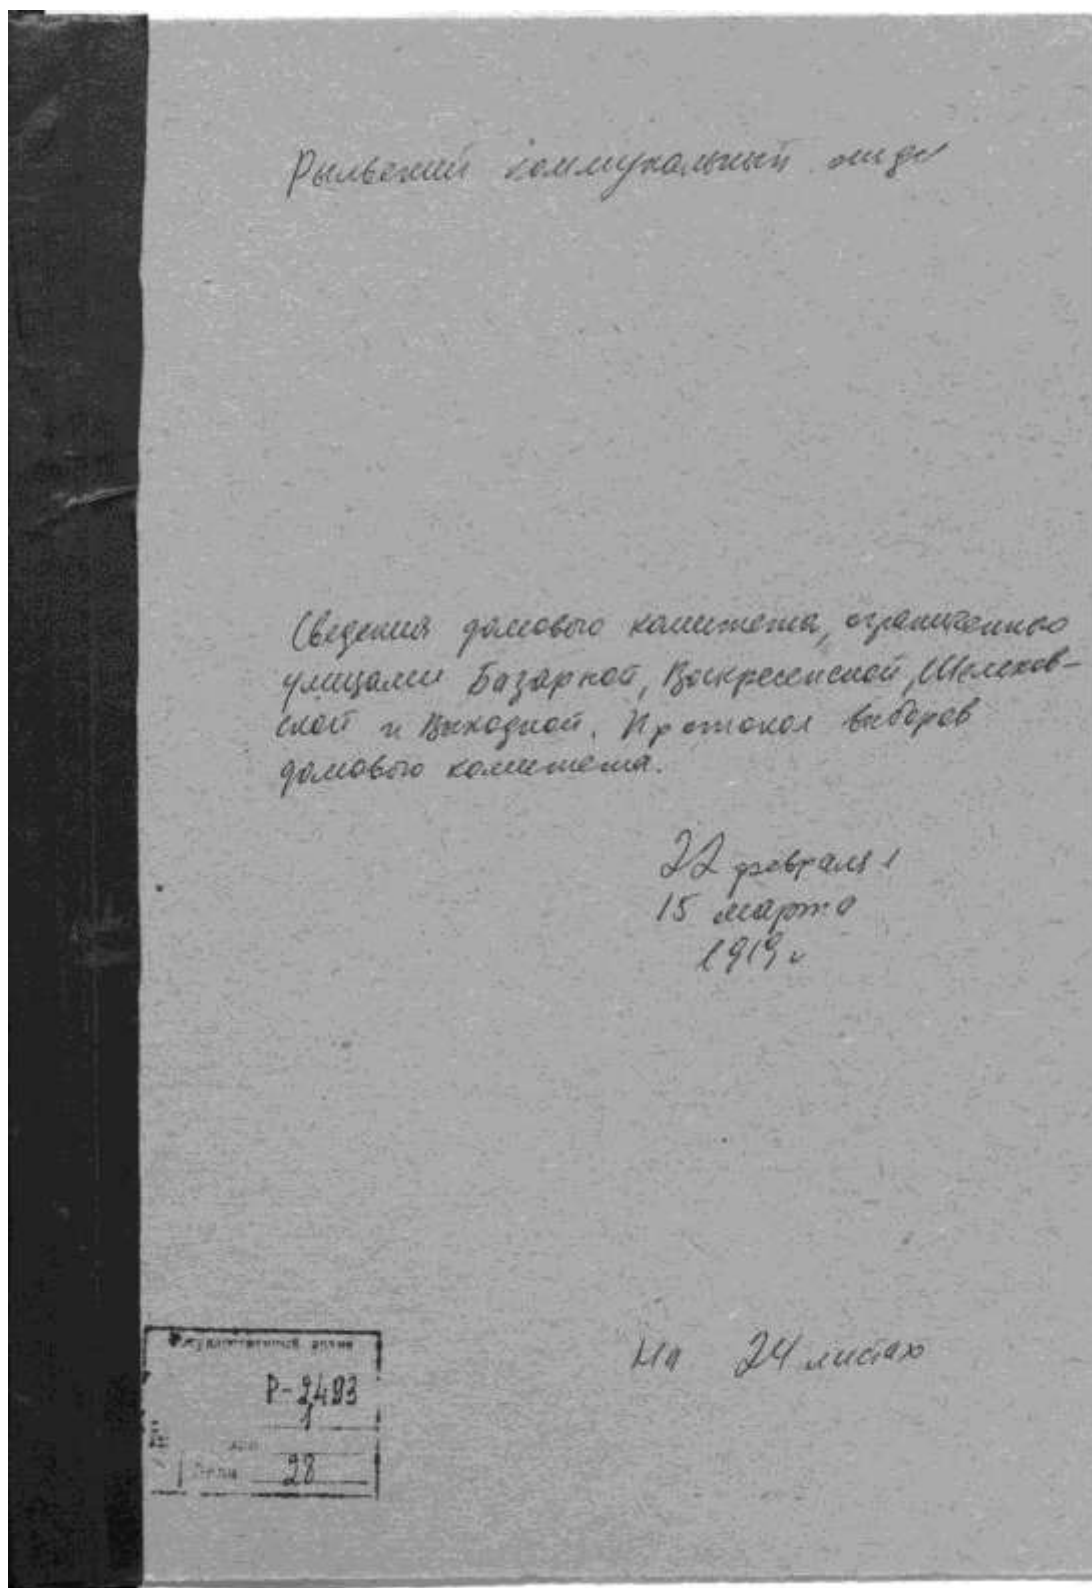 Рыльский коммунальный отдел
Сведения домового комитета, ограниченного
улицами Базарной, Воскресенской, Шелехов-
ской и Выходной. Протокол выборов
домового комитета.
22 февраля
15 марта
1919 г
На 24 листах
Р-2493
1
28